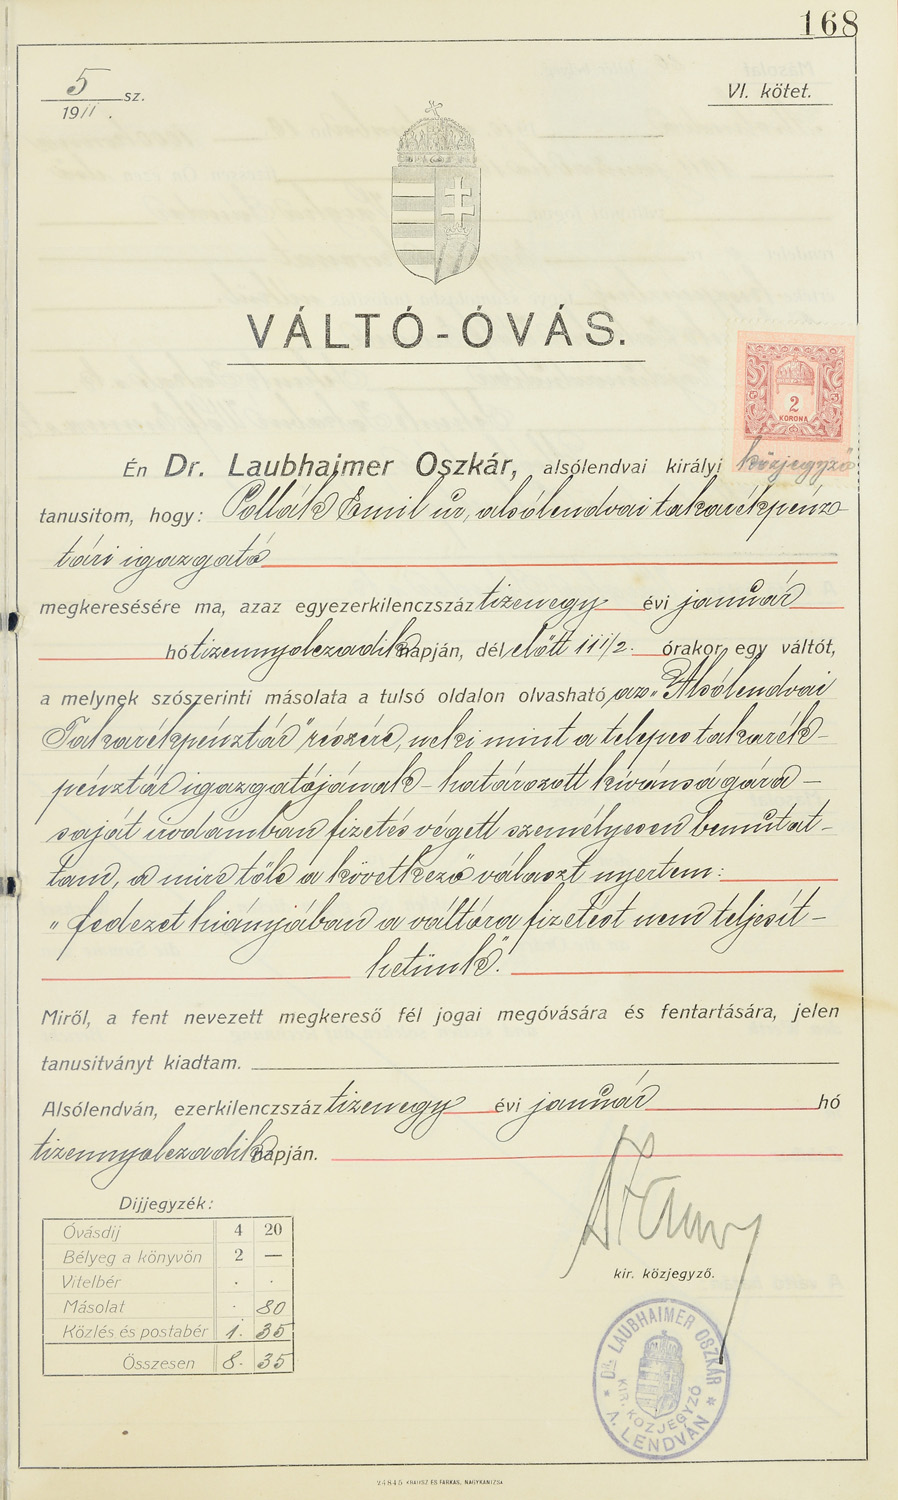 168
5
1911. sz.
VI. kötet.
VÁLTÓ-ÓVÁS.
2
KORONA
Én Dr. Laubhaimer Oszkár, alsólendvai királyi közjegyző
tanusitom, hogy: Pollák Emil ur, alsólendvai takarékpénz
tári igazgató
megkeresésére ma, azaz egyezerkilenczszáz tizenegy évi január
hó tizennyolczadik napján, dél előtt 11 1/2. órakor egy váltót,
a melynek szószerinti másolata a tulsó oldalon olvasható az „Alsólendvai
Takarékpénztár" részére, neki mint a telepes takarék-
pénztár igazgatójának - határozott kívánságára -
saját irodámban fizetés végett személyesen bemutat-
tam, a mire tőle a következő választ nyertem:
„fedezet hiányjában a váltóra fizetést nem teljesít-
hetünk".
Miről, a fent nevezett megkereső fél jogai megóvására és fentartására, jelen
tanusitványt kiadtam.
Alsólendván, ezerkilenczszáz tizenegy évi január hó
tizennyolczadik napján.
Dijjegyzék:
Óvásdij 4 20
Bélyeg a könyvön 2 —
Vitelbér . .
Másolat . 80
Közlés és postabér 1. 35
Összesen 8. 35
kir. közjegyző.
* DR. LAUBHAIMER OSZKÁR *
KIR. KÖZJEGYZŐ
A. LENDVÁN
24845 KRAUSZ ÉS FARKAS, NAGYKANIZSA